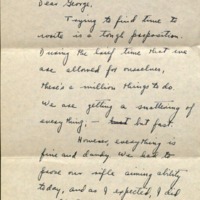 Dear George,
Trying to find time to
write is a tough proposition.
During the brief time that we
are allowed for ourselves,
there's a million things to do.
We are getting a smattering of
everything - but fast.
However, everything is
fine and dandy. We had to
prove our rifle aiming ability
today, and as I expected, I did